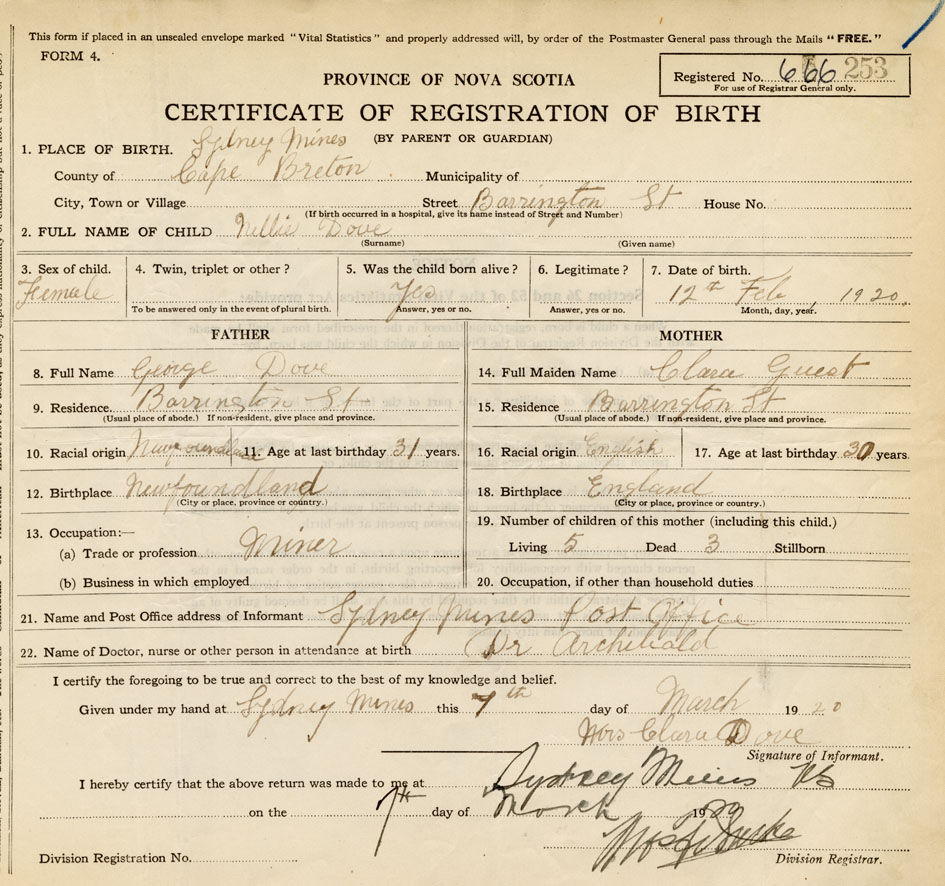 This form if placed in an unsealed envelope marked "Vital Statistics" and properly addressed will, by order of the Postmaster General pass through the Mails "FREE."
FORM 4.
Registered No. 666 253
For use of Registrar General only.
PROVINCE OF NOVA SCOTIA
CERTIFICATE OF REGISTRATION OF BIRTH
(BY PARENT OR GUARDIAN)
1. PLACE OF BIRTH. Sydney Mines
County of Cape Breton Municipality of
City, Town or Village Street Barrington St House No.
(If birth occurred in a hospital, give its name instead of Street and Number)
2. FULL NAME OF CHILD Nellie Dove
(Surname) (Given name)
3. Sex of child. 4. Twin, triplet or other? 5. Was the child born alive? 6. Legitimate? 7. Date of birth.
Female Yes 12th Feb, 1920.
To be answered only in the event of plural birth. Answer, yes or no. Answer, yes or no. Month, day, year.
FATHER MOTHER
8. Full Name George Dove 14. Full Maiden Name Clara Guest
9. Residence. Barrington St 15. Residence Barrington St
(Usual place of abode.) If non-resident, give place and province. (Usual place of abode.) If non-resident, give place and province.
10. Racial origin Newfoundland 11. Age at last birthday 31 years. 16. Racial origin English 17. Age at last birthday 30 years.
12. Birthplace Newfoundland 18. Birthplace England
(City or place, province or country.) (City or place, province or country.)
13. Occupation:— 19. Number of children of this mother (including this child.)
(a) Trade or profession Miner Living 5 Dead 3 Stillborn
(b) Business in which employed 20. Occupation, if other than household duties
21. Name and Post Office address of Informant Sydney Mines Post Office
22. Name of Doctor, nurse or other person in attendance at birth Dr Archibald
I certify the foregoing to be true and correct to the best of my knowledge and belief.
Given under my hand at Sydney Mines this 7th day of March 1920
Mrs Clara Dove
Signature of Informant.
I hereby certify that the above return was made to me at Sydney Mines NS
on the 7th day of March 1920
Division Registration No. Division Registrar.